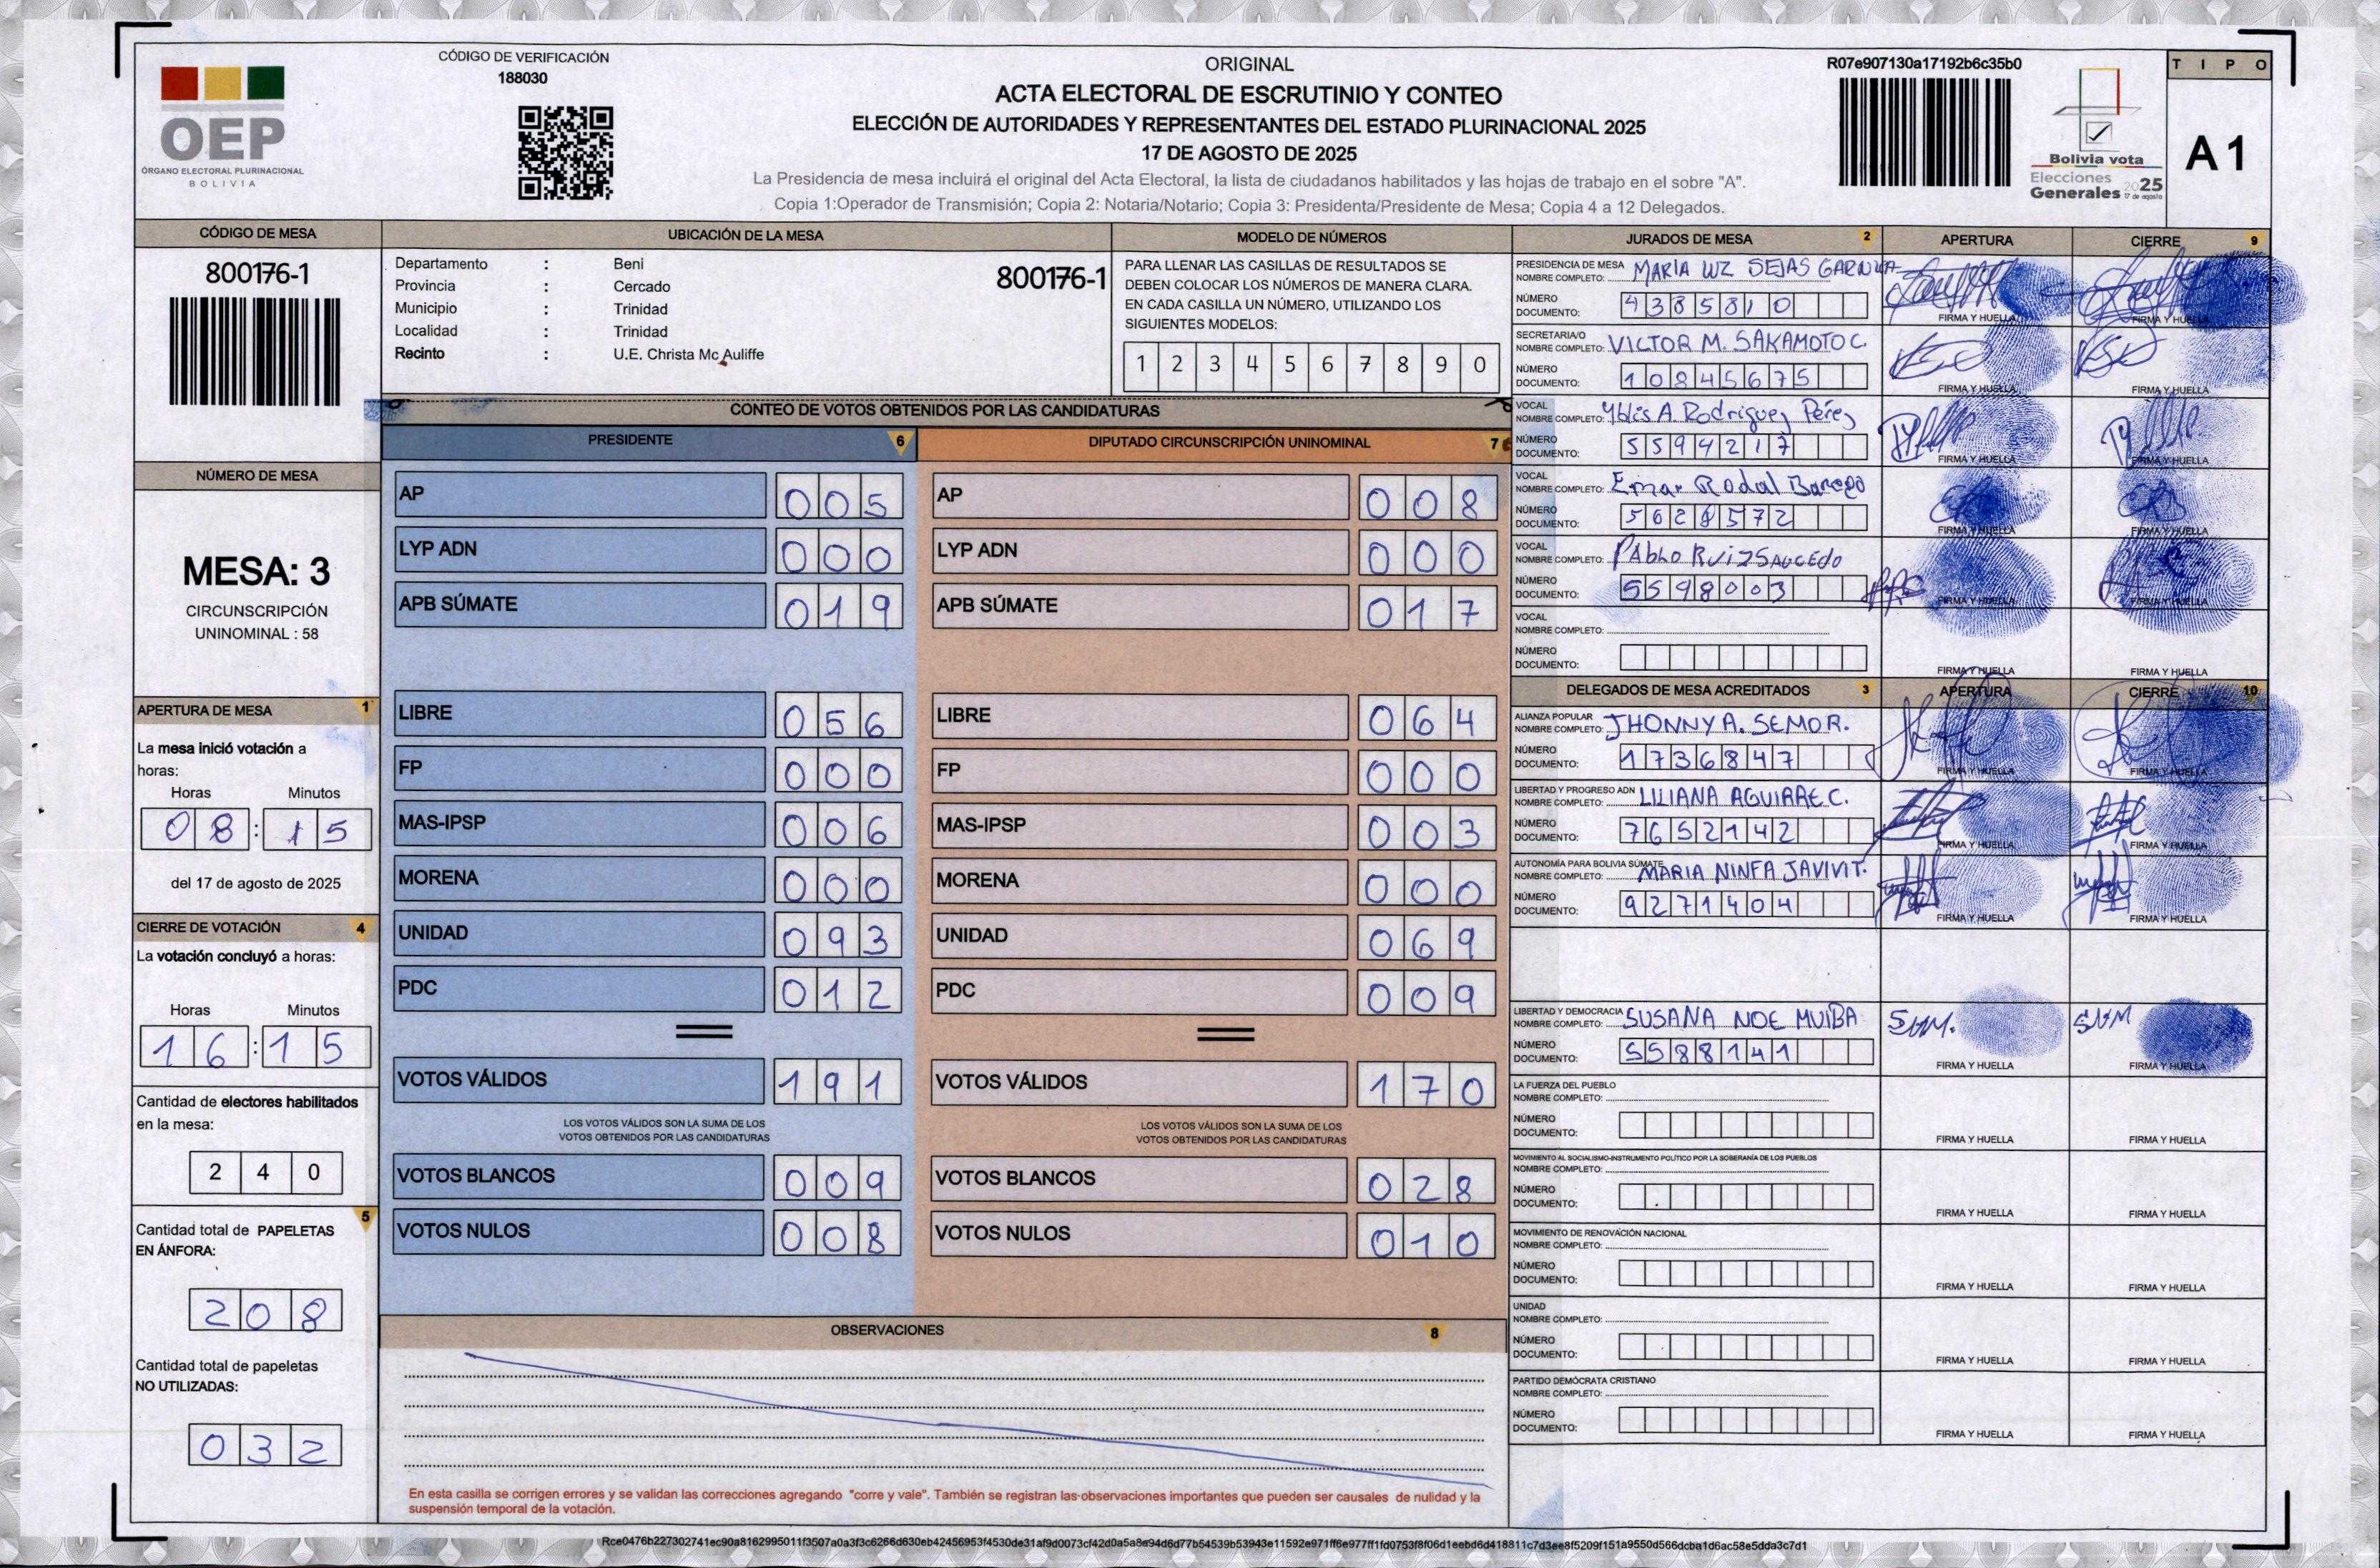 CÓDIGO DE VERIFICACIÓN
188030
OEP
ÓRGANO ELECTORAL PLURINACIONAL
BOLIVIA
ORIGINAL
ACTA ELECTORAL DE ESCRUTINIO Y CONTEO
ELECCIÓN DE AUTORIDADES Y REPRESENTANTES DEL ESTADO PLURINACIONAL 2025
17 DE AGOSTO DE 2025
La Presidencia de mesa incluirá el original del Acta Electoral, la lista de ciudadanos habilitados y las hojas de trabajo en el sobre "A".
Copia 1:Operador de Transmisión; Copia 2: Notaria/Notario; Copia 3: Presidenta/Presidente de Mesa; Copia 4 a 12 Delegados.
R07e907130a17192b6c35b0
Bolivia vota
Elecciones
Generales 2025
17 de agosto
TIPO
A1
CÓDIGO DE MESA
800176-1
UBICACIÓN DE LA MESA
Departamento : Beni
Provincia : Cercado
Municipio : Trinidad
Localidad : Trinidad
Recinto : U.E. Christa Mc Auliffe
800176-1
MODELO DE NÚMEROS
PARA LLENAR LAS CASILLAS DE RESULTADOS SE
DEBEN COLOCAR LOS NÚMEROS DE MANERA CLARA.
EN CADA CASILLA UN NÚMERO, UTILIZANDO LOS
SIGUIENTES MODELOS:
1 2 3 4 5 6 7 8 9 0
NÚMERO DE MESA
MESA: 3
CIRCUNSCRIPCIÓN
UNINOMINAL : 58
APERTURA DE MESA 1
La mesa inició votación a
horas:
Horas Minutos
08 : 15
del 17 de agosto de 2025
CIERRE DE VOTACIÓN 4
La votación concluyó a horas:
Horas Minutos
16 : 15
Cantidad de electores habilitados
en la mesa:
240
5
Cantidad total de PAPELETAS
EN ÁNFORA:
208
Cantidad total de papeletas
NO UTILIZADAS:
032
CONTEO DE VOTOS OBTENIDOS POR LAS CANDIDATURAS
PRESIDENTE 6
AP 005
LYP ADN 000
APB SÚMATE 019
LIBRE 056
FP 000
MAS-IPSP 006
MORENA 000
UNIDAD 093
PDC 012
VOTOS VÁLIDOS 191
LOS VOTOS VÁLIDOS SON LA SUMA DE LOS
VOTOS OBTENIDOS POR LAS CANDIDATURAS
VOTOS BLANCOS 009
VOTOS NULOS 008
DIPUTADO CIRCUNSCRIPCIÓN UNINOMINAL 7
AP 008
LYP ADN 000
APB SÚMATE 017
LIBRE 064
FP 000
MAS-IPSP 003
MORENA 000
UNIDAD 069
PDC 009
VOTOS VÁLIDOS 170
LOS VOTOS VÁLIDOS SON LA SUMA DE LOS
VOTOS OBTENIDOS POR LAS CANDIDATURAS
VOTOS BLANCOS 028
VOTOS NULOS 010
OBSERVACIONES 8
En esta casilla se corrigen errores y se validan las correcciones agregando "corre y vale". También se registran las observaciones importantes que pueden ser causales de nulidad y la
suspensión temporal de la votación.
JURADOS DE MESA 2 APERTURA CIERRE 9
PRESIDENCIA DE MESA
NOMBRE COMPLETO: MARIA LUZ SEJAS
NÚMERO
DOCUMENTO: 4385810
FIRMA Y HUELLA FIRMA Y HUELLA
SECRETARIA/O
NOMBRE COMPLETO: VICTOR M. SAKAMOTO C.
NÚMERO
DOCUMENTO: 10845675
FIRMA Y HUELLA FIRMA Y HUELLA
VOCAL
NOMBRE COMPLETO: A. Rodriguez Pérez
NÚMERO
DOCUMENTO: 5594217
FIRMA Y HUELLA FIRMA Y HUELLA
VOCAL
NOMBRE COMPLETO: Rodal
NÚMERO
DOCUMENTO: 5628572
FIRMA Y HUELLA FIRMA Y HUELLA
VOCAL
NOMBRE COMPLETO: PAblo RUiZ SAUCEdo
NÚMERO
DOCUMENTO: 5598003
FIRMA Y HUELLA FIRMA Y HUELLA
VOCAL
NOMBRE COMPLETO:
NÚMERO
DOCUMENTO:
FIRMA Y HUELLA FIRMA Y HUELLA
DELEGADOS DE MESA ACREDITADOS 3 APERTURA CIERRE 10
ALIANZA POPULAR
NOMBRE COMPLETO: JHONNY A. SEMO R.
NÚMERO
DOCUMENTO: 1736847
FIRMA Y HUELLA FIRMA Y HUELLA
LIBERTAD Y PROGRESO ADN
NOMBRE COMPLETO: LILIANA AGUIRRE C.
NÚMERO
DOCUMENTO: 7652142
FIRMA Y HUELLA FIRMA Y HUELLA
AUTONOMÍA PARA BOLIVIA SÚMATE
NOMBRE COMPLETO: MARIA NINFA JAVIVI T.
NÚMERO
DOCUMENTO: 9271404
FIRMA Y HUELLA FIRMA Y HUELLA
LIBERTAD Y DEMOCRACIA
NOMBRE COMPLETO: SUSANA NOE MUIBA
NÚMERO
DOCUMENTO: 5588141
SNM. SNM
FIRMA Y HUELLA FIRMA Y HUELLA
LA FUERZA DEL PUEBLO
NOMBRE COMPLETO:
NÚMERO
DOCUMENTO:
FIRMA Y HUELLA FIRMA Y HUELLA
MOVIMIENTO AL SOCIALISMO-INSTRUMENTO POLÍTICO POR LA SOBERANÍA DE LOS PUEBLOS
NOMBRE COMPLETO:
NÚMERO
DOCUMENTO:
FIRMA Y HUELLA FIRMA Y HUELLA
MOVIMIENTO DE RENOVACIÓN NACIONAL
NOMBRE COMPLETO:
NÚMERO
DOCUMENTO:
FIRMA Y HUELLA FIRMA Y HUELLA
UNIDAD
NOMBRE COMPLETO:
NÚMERO
DOCUMENTO:
FIRMA Y HUELLA FIRMA Y HUELLA
PARTIDO DEMÓCRATA CRISTIANO
NOMBRE COMPLETO:
NÚMERO
DOCUMENTO:
FIRMA Y HUELLA FIRMA Y HUELLA